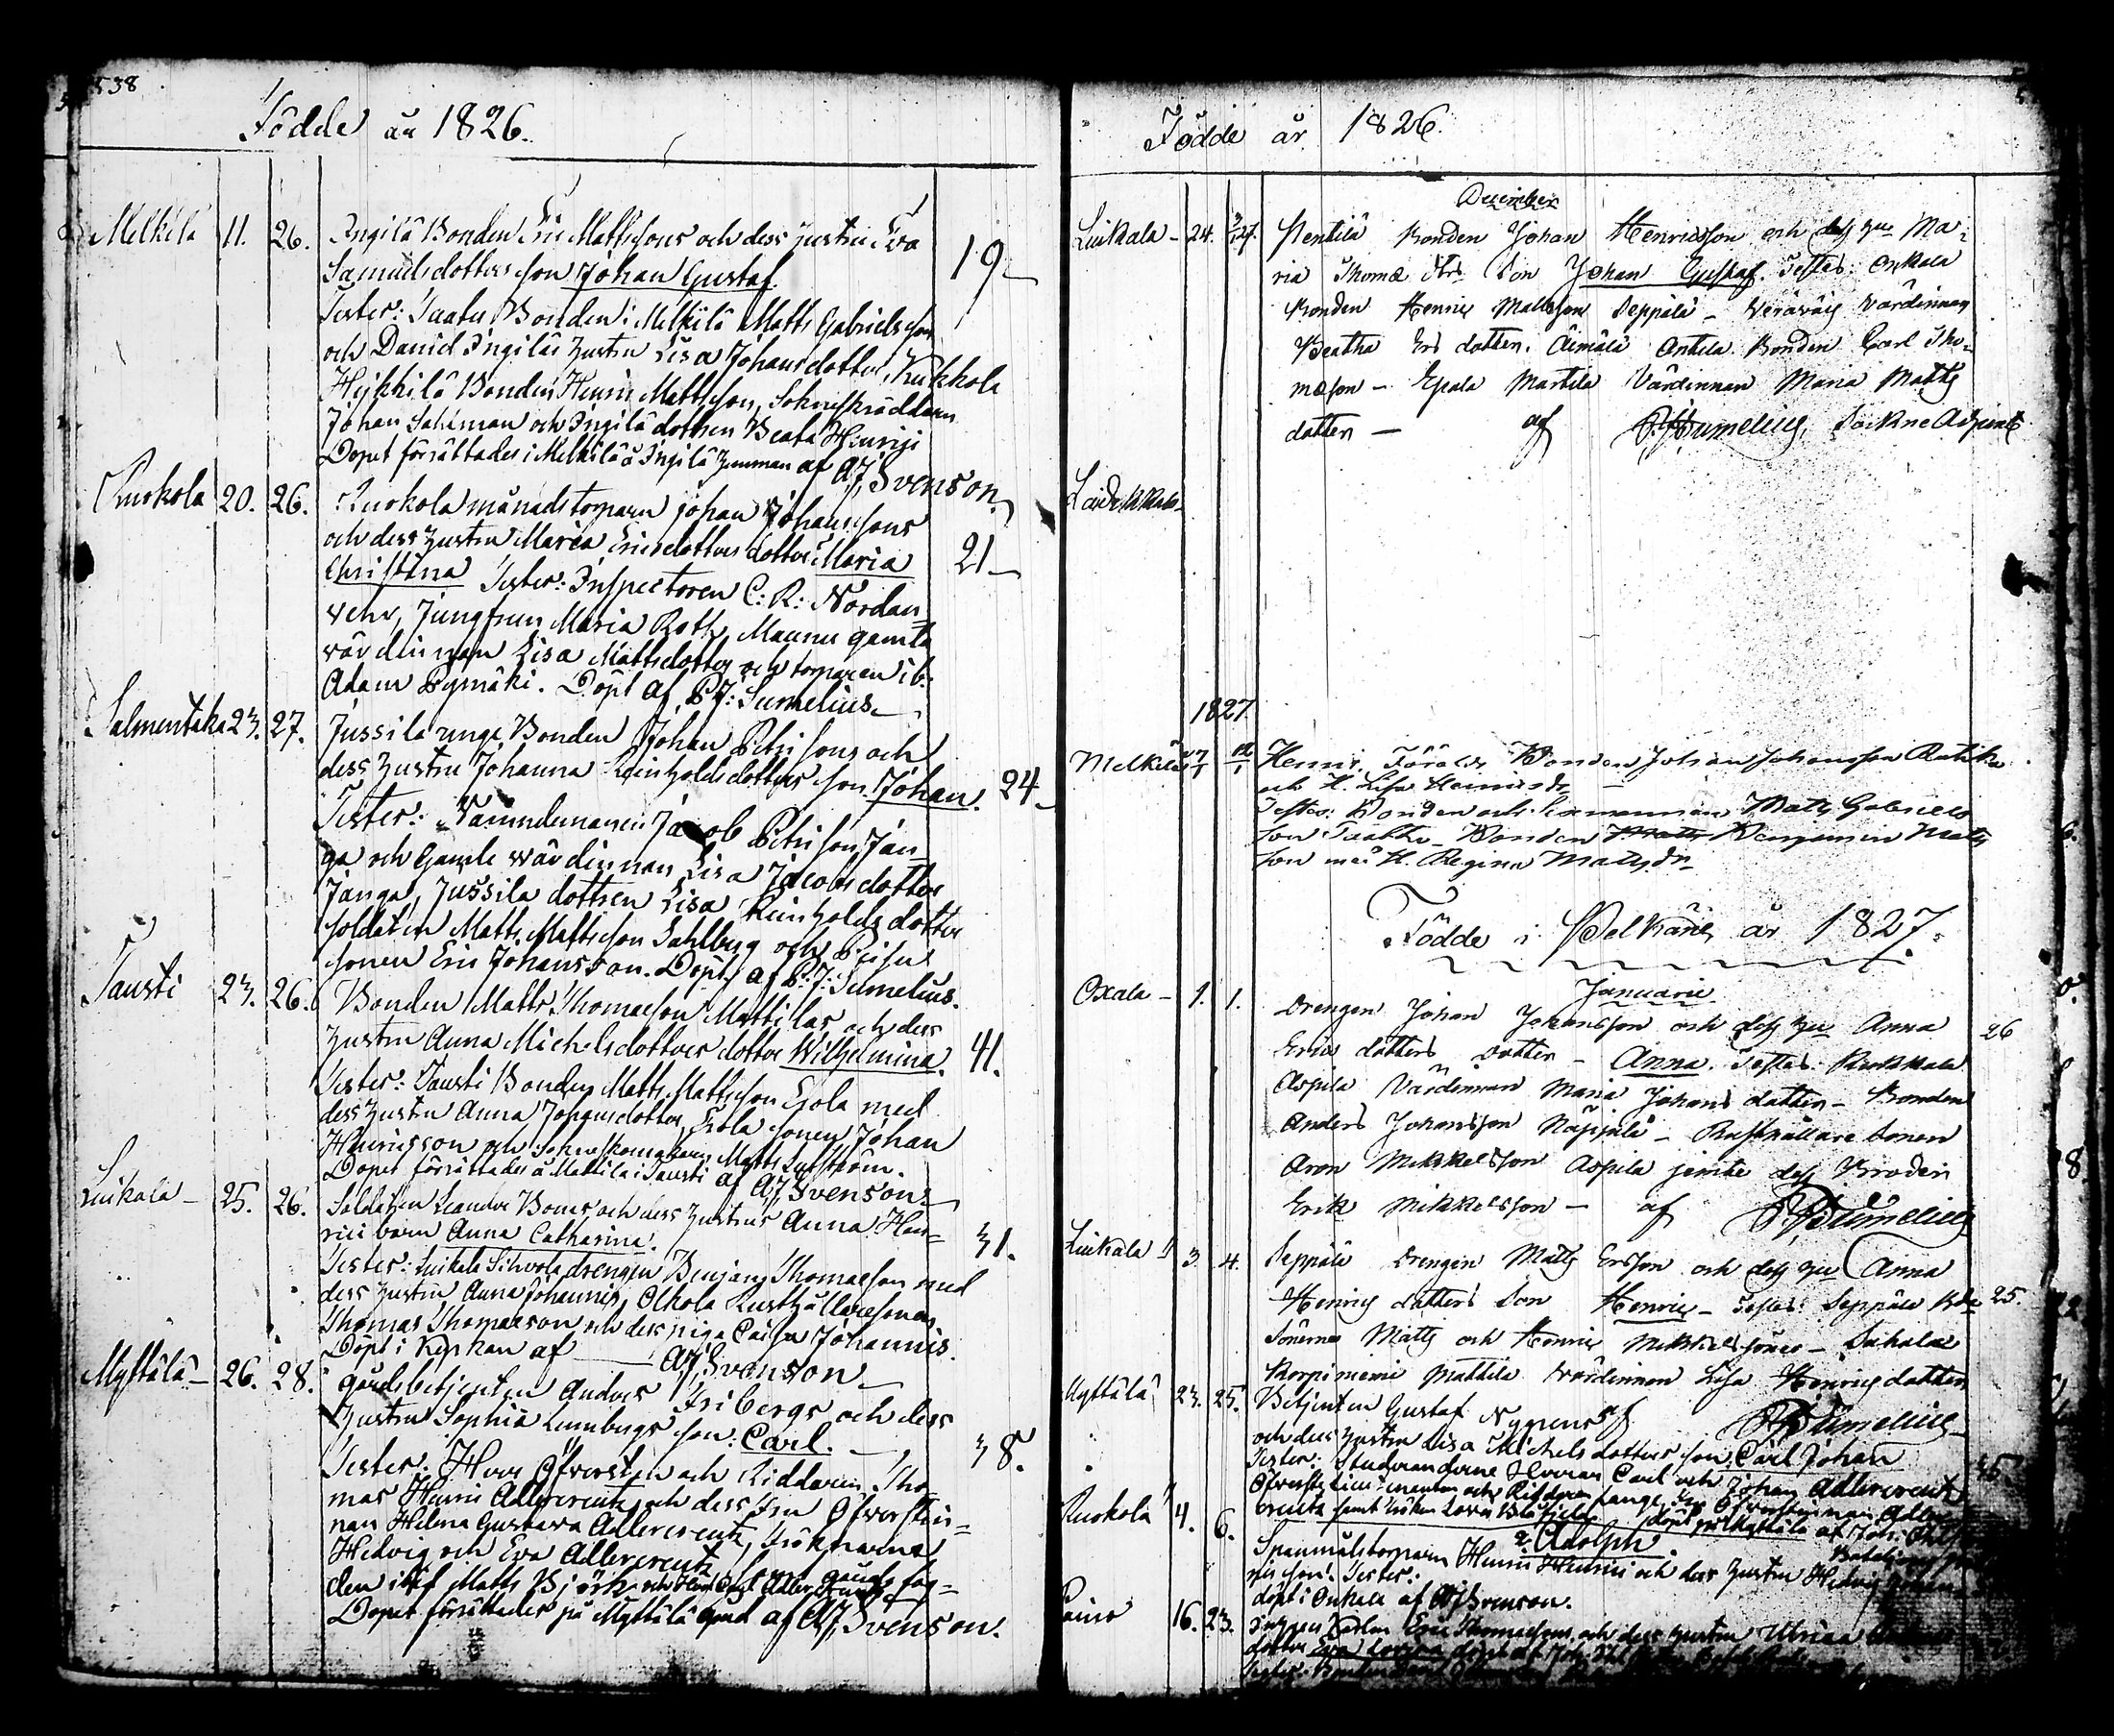 538
Födde år 1826.
Melkilä 11. 26. Ingilä Bonden Eric Mattssons och dess hustru Eva
Samuelsdotters son Johan Gustaf. 19
Tester: Taatu Bonden i Melkilä Matts Gabrielsson
och David Ingiläs hustru Lisa Johansdotter, Kukkola
Heikkilä Bonden Henric Mattsson, Sokneskräddaren
Johan Sahlman och Ingilä dottren Beata Henrici
Dopet förrättades i Melkilä å Ingilä hemman af A.J. Svenson.
Ruokola 20. 26. Ruokola månads torparen Johan Johanssons
och dess hustru Maria Ericsdotters dotter Maria 21
Christina Tester: Inspectoren C: R: Nordan
vehr, Jungfrun Maria Roth, Maunu gamla
värdinnan Lisa Mattsdotter och torparen ib:
Adam Pynnäki. Döpt af P.J: Sumelius
Salmentaka 23. 27. Jussila unge Bonden Johan Petrisons och
dess hustru Johanna Reinholdsdotters son Johan. 24
Tester: Nämndemannen Jacob Petrison Jan-
ga och Gamle värdinnan Lisa Jacobsdotter
Janga, Jussila dottren Lisa Reinholds dotter
soldaten Matts Mattsson Sahlberg och
sonen Eric Johansson. Döpt af P.J: Sumelius.
Tausti 23. 26. Bonden Matts Thomaeson Mattilas och dess
hustru Anna Michelsdotters dotter Wilhelmina. 41.
Tester: Tausti Bonden Matts Mattsson Eola med
dess hustru Anna Johansdotter, Eola sonen Johan
Henricsson och Sokneskomakaren Matts
Dopet förrättades å Mattila i Tausti af A.J. Svenson
Luikala 25. 26. Soldaten Leander Boms och dess hustrus Anna Hen-
rici barn Anna Catharina. 31.
Tester: Luikala Sihvola drengen Benjam: Thomaeson med
dess hustru Anna Johannis, Olkola Rusthållaresonen
Thomas Thomaeson och dess piga Caisa Johannis.
Döpt i Kyrkan af A.J. Svenson
Myttälä 26. 28. gårdsbetjenten Anders Fribergs och dess
hustru Sophia Lunnbergs son: Carl. 38.
Tester: Herr Öfversten och Riddaren Tho-
mas Henric Adlercreutz och dess Fru Öfverstin-
nan Helena Gustava Adlercreutz, Fröknarna
Hedvig och Eva Adlercreutz gårds fog-
den ibid Matts Björk och Herr Carl Adlercreutz
Dopet förrättades på Myttälä gård af A.J. Svenson.
Födde år 1826.
December
Luikala 24. Pentilä Bonden Johan Henricsson och dess hu Ma-
ria Thomæ dtrs Son Johan Gustaf. Testes: Onkala
Bonden Henric Mattsson Seppälä - Värdinnan
Beatha Ers dotter. Äimälä Antila Bonden Carl Tho-
mæson - Epala Martila Värdinnan Maria Matts
dotter - af P.J. Sumelius, Sockne Adjunct
Laidekkala
1827.
Melkilä Henric, Föräldr: Bonden Johan Johansson Ratike
och H. Lisa Heinricsdr
Testes: Bonden och Sexmannen Matts Gabriels
son Taatu - Bonden Matts Benjamin Matts
son med H. Regina Matsdr
Födde i Pelkäne år 1827.
Januarii
Oxala 1. 1. Drengen Johan Johansson och dess hu Anna 26
Erics dotters dotter - Anna. Testes: Kukkola
Aspila Värdinnan Maria Johans dotter - Bonden
Anders Johansson Näppilä - Rusthållare Sonen
Aron Mikkelsson Aspila jemte dess Broder
Erik Mikkelsson - af P.J. Sumelius
Luikala 3. 4. Seppälä Drengen Matts Ersson och dess hu Anna
Henrics dotters Son Henric - Testes: Seppälä 25.
Sönerne Matts och Henric Mikkelssöner - Sahala
Korpiniemi Mattila Värdinnan Lisa Henrics dotter
af P.J. Sumelius
Myttälä 23. 25. Betjenten Gustaf Nygrens
och dess hustru Lisa Michelsdotters son Carl Johan
Tester: Studerandene Herrar Carl och Johan Adlercreutz
Öfverste Lieutnanten och Riddaren Lange, Fru Öfverstinnan Adler-
creutz samt fröken Lovisa döpt på Myttälä af Joh:
Ruokola 4. 6. Adolph.
Spanmålstorparen Henric Henrici och dess hustru Hedvig
son. Tester:
döpt i Onkala af A.J. Svenson.
16. 23. Eric Thomaesons och dess hustru Ulrica
dotter Eva Lovisa döpt af Joh: